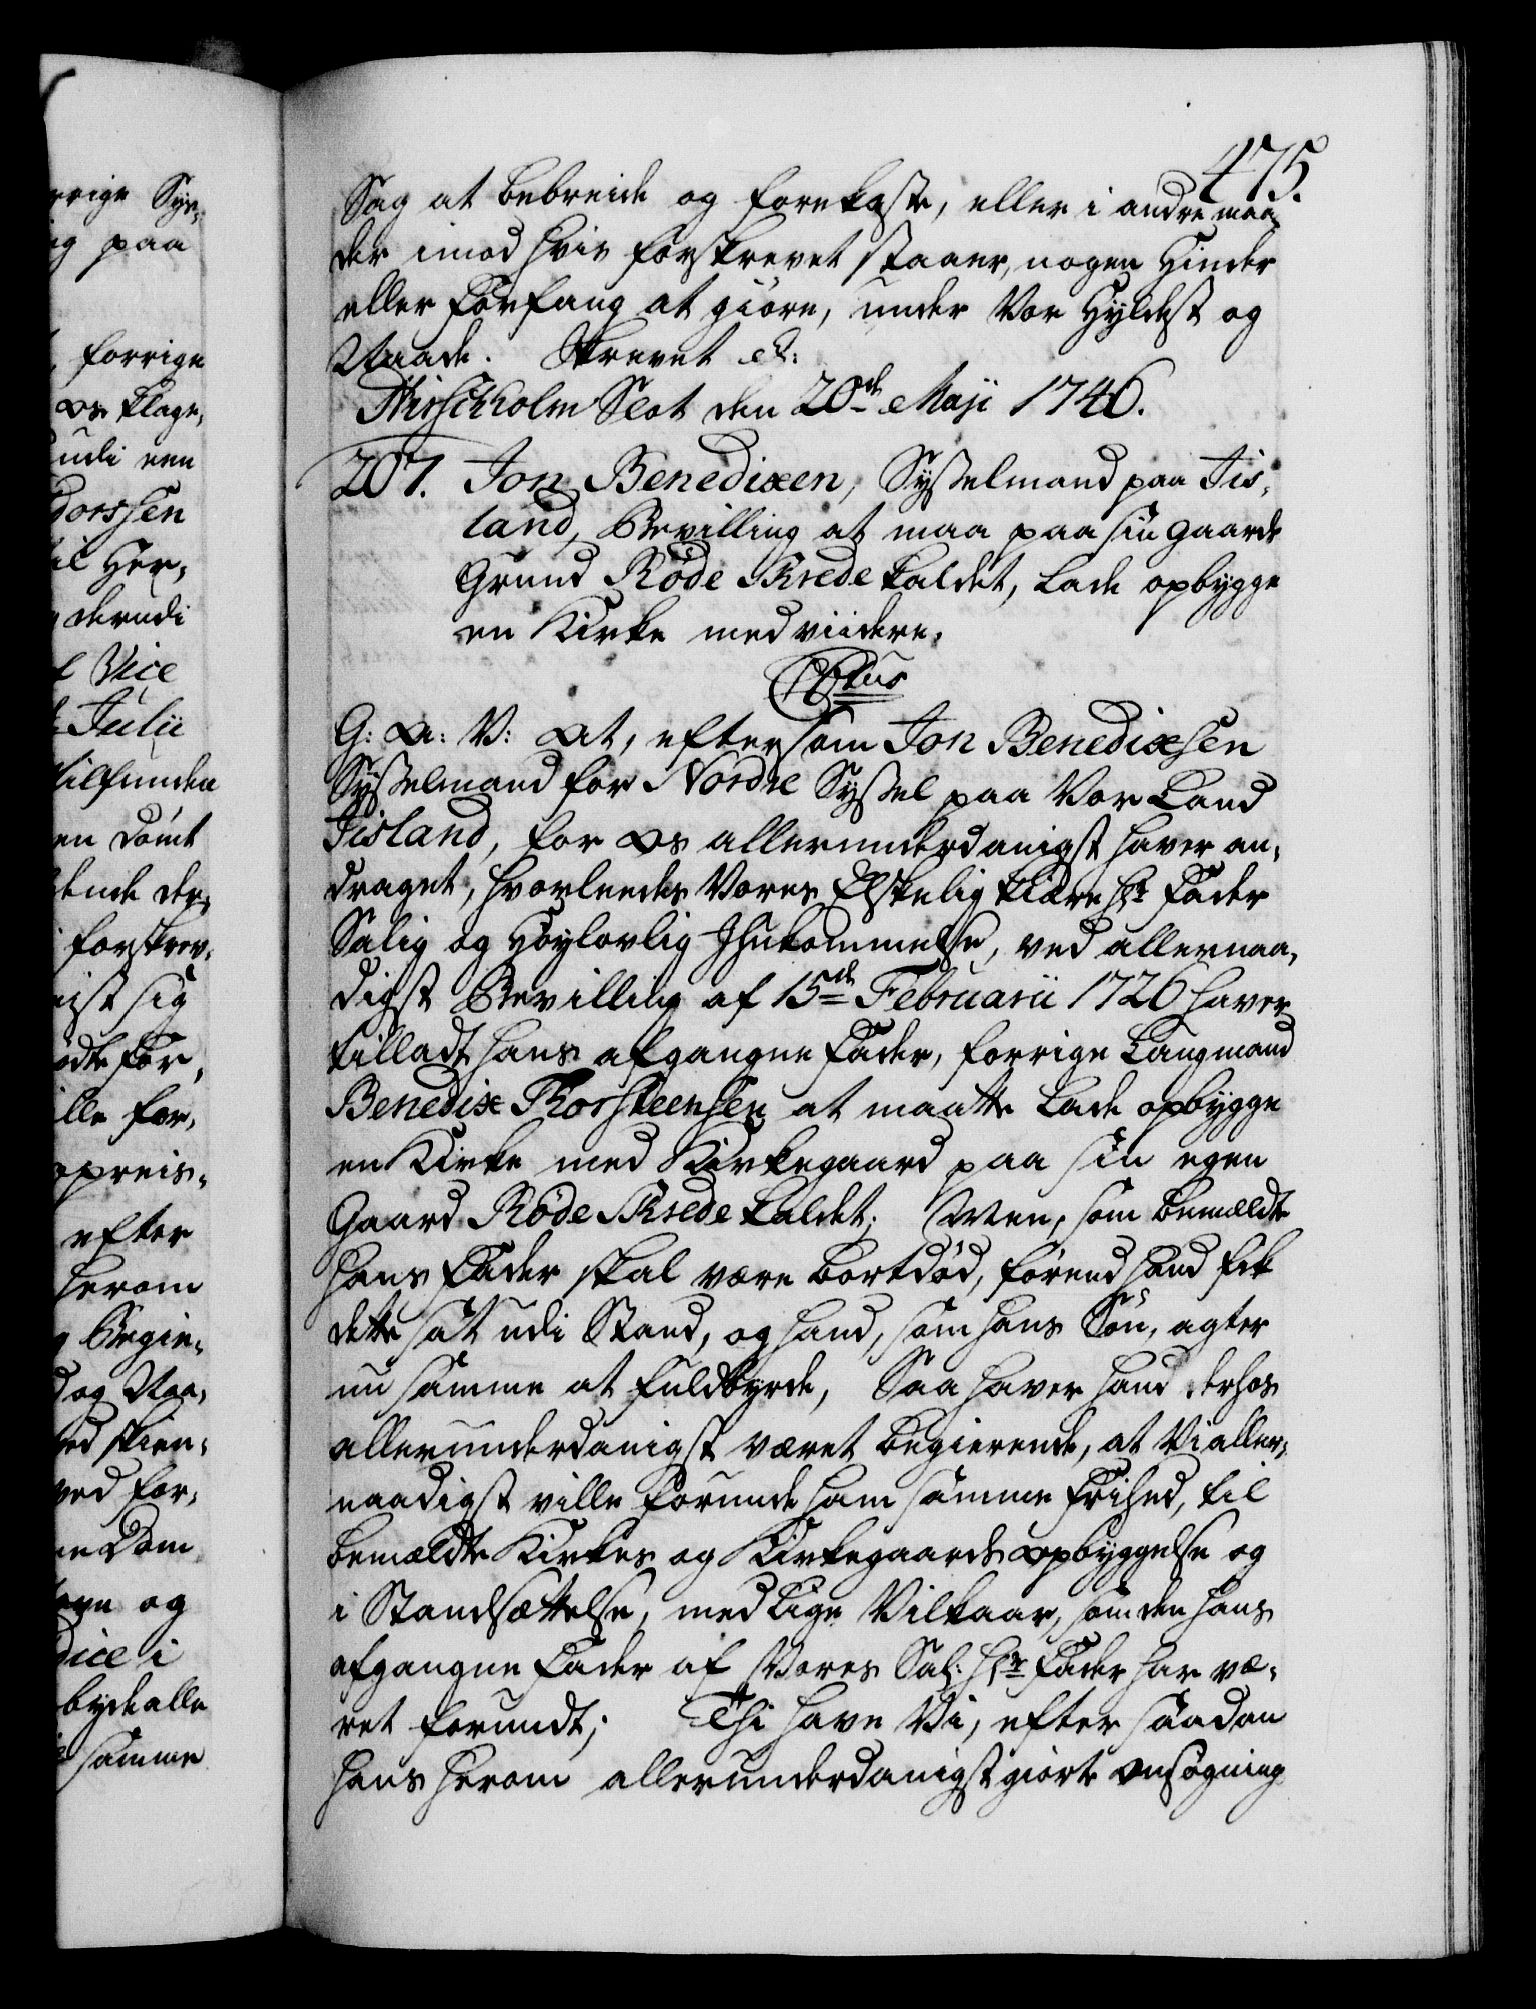 475.
Sag at bebreide og forekaste, eller i andre maa,
der imod hvis forskrevet staaer, nogen Hinder
eller Forfang at giöre, under Vor Hyldest og
Naade. Skrevet &:
Hirschholm Slot den 20de Maji 1746.
207. Jon Benedixen, Sysselmand paa Iis,
land, Bevilling at maa paa sin Gaards
Grund Röde Skrede kaldet, lade opbygge
en Kirke med viidere.
G: A: V: At, eftersom Jon Benedixsen
Sysselmand for Nordre Syssel paa Vor Land
Iisland, for Os allerunderdanigst haver an,
draget, hvorleedes Vores Elskelig Kiære Hr Fader
Salig og Höylovlig Ihukommelse, ved allernaa,
digst Bevilling af 15de Februarii 1726 haver
tilladt hans afgangne Fader, forrige Laugmand
Benedix Thorsteensen at maatte lade opbygge
en Kirke med Kirkegaard paa sin egen
Gaard Röde Skrede kaldet; Men, som bemeldte
hans Fader skal være bortdöd, förend hand fik
dette sat udi Stand, og hand, som hans Sön, agter
nu samme at fuldbyrde, Saa haver hand derhos
allerunderdanigst været begierende, at Vi aller,
naadigst ville forunde ham samme Frihed, til
bemeldte Kirkes og Kirkegaards Opbyggelse og
i Standsættelse, med lige Vilkaar, som den hans
afgangne Fader af Vores Sal: Hr Fader har væ,
ret forundt; Thi have Vi, efter saadan
hans herom allerunderdanigst giorte Ansögning
rrige Sys,
ig paa
forrige
Os klage,
udi een
dorssen
il Her,
derudi
Vice
Julii
tilfunden
en Dömt
dende der,
forskrev,
ist sig
ödte For,
ille for,
opreis,
efter
herom
Begie,
og Naa,
ed skien,
ved for,
ne Dom
og
dice i
byde alle
samme